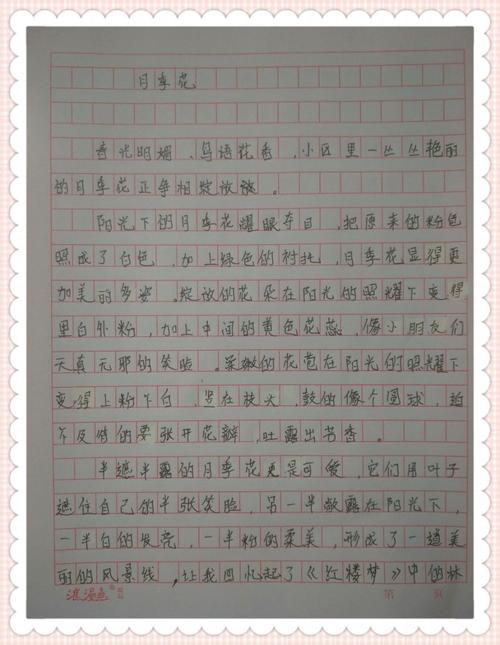 月季花
春光明媚，鸟语花香，小区里一丛丛艳丽
的月季花正争相绽放。
阳光下的月季花耀眼夺目，把原来的粉色
照成了白色，加上绿色的衬托，月季花显得更
加美的多姿。绽放的花朵在阳光的照耀下变得
里白外粉，加上中间的黄色花蕊，像小朋友们
天真无邪的笑脸。柔嫩的花苞在阳光的照耀下
变得上粉下白，竖在枝头，鼓的像个圆球，迫
不及待的要张开花瓣，吐露出芳香。
半遮半露的月季花更是可爱，它们用叶子
遮住自己的半张笑脸，另一半敞露在阳光下，
一半白的发亮，一半粉的柔美，形成了一道美
丽的风景线，让我回忆起了《红楼梦》中的林
第 页